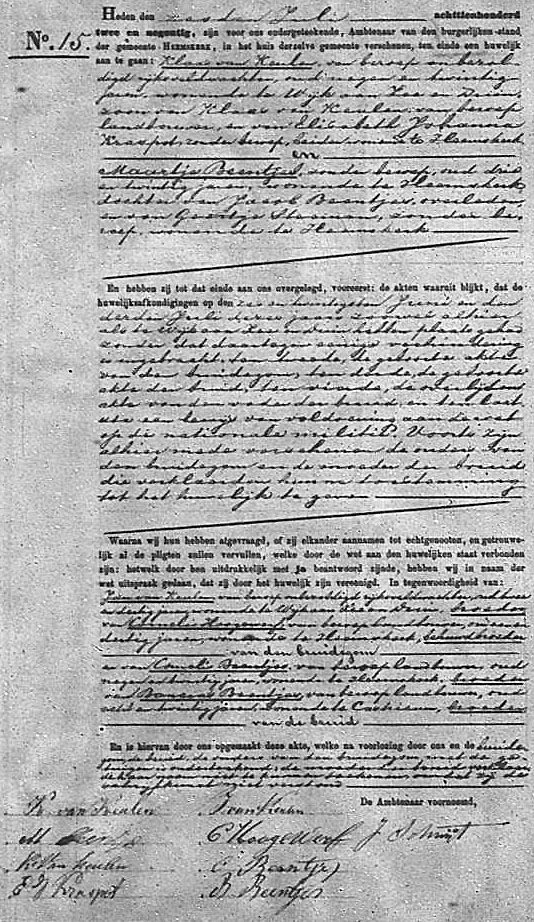 Heden den zesden Juli achttienhonderd
No. 15.
twee en negentig, zijn voor ons ondergeteekende, Ambtenaar van den burgerlijken stand
der gemeente HEEMSKERK, in het huis derzelve gemeente verschenen, ten einde een huwelijk
aan te gaan: Klaas van Keulen, van beroep onbezol
digd rijksveldwachter, oud negen en twintig
jaren, wonende te Wijk aan Zee en Duin
zoon van Klaas van Keulen, van beroep
landbouwer, en van Elisabeth Johanna
Kraspot, zonder beroep, beiden wonende te Heemskerk
en
Maartje Beentjes, zonder beroep, oud drie
en twintig jaren, wonende te Heemskerk
dochter van Jacob Beentjes, overleden
en van Geertje, zonder be
roep, wonende te Heemskerk
En hebben zij tot dat einde aan ons overgelegd, vooreerst: de akten waaruit blijkt, dat de
huwelijksafkondigingen op den zes en twintigsten Junij en den
derden Juli dezes jaars zoowel alhier
als te Wijk aan Zee en Duin hebben plaats gehad
zonder dat daartegen eenige verhindering
is ingebracht, ten tweede, de geboorte akte
van den bruidegom, ten derde, de geboorte
akte der bruid, ten vierde, de overlijdens
akte van den vader der bruid, en ten laat
ste een bewijs van voldoening aan de wet
op de nationale militie. Voorts zijn
alhier mede verschenen de ouders van
den bruidegom en de moeder der bruid
die verklaarden hunne toestemming
tot het huwelijk te geven
Waarna wij hun hebben afgevraagd, of zij elkander aannamen tot echtgenooten, en getrouwe-
lijk al de pligten zullen vervullen, welke door de wet aan den huwelijken staat verbonden
zijn: hetwelk door hen uitdrukkelijk met ja beantwoord zijnde, hebben wij in naam der
wet uitspraak gedaan, dat zij door het huwelijk zijn vereenigd. In tegenwoordigheid van:
van Keulen van beroep onbezoldigd rijksveldwachter, oud
en dertig jaren, wonende te Wijk aan Zee en Duin, broeder
van Cornelis Hoogewerf van beroep landbouwer, oud
dertig jaren, wonende te Heemskerk, behuwdbroeder
van den bruidegom
en van Cornelis Beentjes, van beroep landbouwer, oud
jaren, wonende te Heemskerk, broeder
van Beentjes, van beroep landbouwer, oud
jaren, wonende te Castricum, broeder
van de bruid
En is hiervan door ons opgemaakt deze akte, welke na voorlezing door ons en de bruide
gom, de bruid, de ouders van den bruidegom
De Ambtenaar voornoemd,
K. van Keulen
M Beentjes C Hoogewerf J. Schuijt
K. Van Keulen C. Beentjes
E J Kraspot B Beentjes